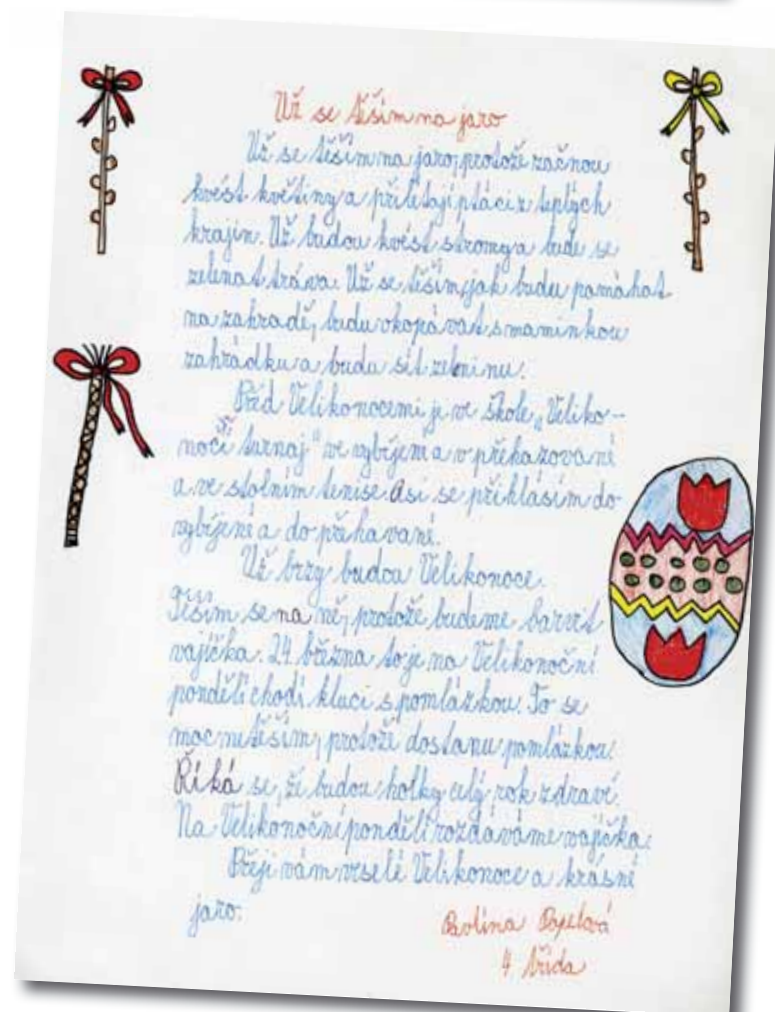 Už se těším na jaro
Už se těším na jaro, protože začnou
kvést květiny a přilítají ptáci z teplých
krajin. Už budou kvést stromy a bude se
zelenat tráva. Už se těším, jak budu pomáhat
na zahradě, budu okopávat s maminkou
zahrádku a budu sít zeleninu.
Před Velikonocemi je ve škole „Veliko-
noční turnaj" ve vybíjené a v přehazované
a ve stolním tenise. Asi se přihlásím do
vybíjené a do přehazované.
Už brzy budou Velikonoce.
Těším se na ně, protože budeme barvit
vajíčka. 24. března to je na Velikonoční
pondělí chodí kluci s pomlázkou. To se
moc netěším, protože dostanu pomlázkou.
Říká se, že budou holky celý rok zdravé.
Na Velikonoční pondělí rozdáváme vajíčka.
Přeji vám veselé Velikonoce a krásné
jaro.
Pavlína
4. třída